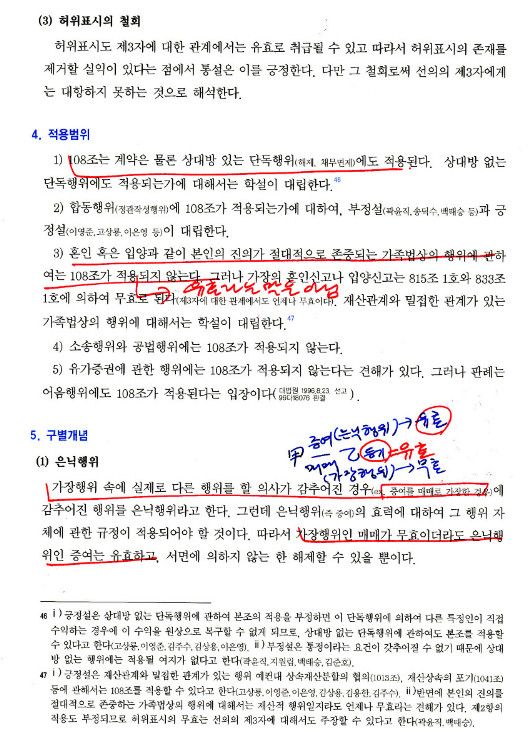 (3) 허위표시의 철회
허위표시도 제3자에 대한 관계에서는 유효로 취급될 수 있고 따라서 허위표시의 존재를
제거할 실익이 있다는 점에서 통설은 이를 긍정한다. 다만 그 철회로써 선의의 제3자에게
는 대항하지 못하는 것으로 해석한다.
4. 적용범위
1) 108조는 계약은 물론 상대방 있는 단독행위(해제, 채무면제)에도 적용된다. 상대방 없는
단독행위에도 적용되는가에 대해서는 학설이 대립한다.46
2) 합동행위(정관작성행위)에 108조가 적용되는가에 대하여, 부정설(곽윤직,송덕수,백태승 등)과 긍
정설(이영준,고상룡,이은영 등)이 대립한다.
3) 혼인 혹은 입양과 같이 본인의 진의가 절대적으로 존중되는 가족법상의 행위에 관하
여는 108조가 적용되지 않는다. 그러나 가장의 혼인신고나 입양신고는 815조 1호와 833조
유효라는 말은 아님
1호에 의하여 무효로 된다(제3자에 대한 관계에서도 언제나 무효이다). 재산관계와 밀접한 관계가 있는
가족법상의 행위에 대해서는 학설이 대립한다.47
4) 소송행위와 공법행위에는 108조가 적용되지 않는다.
5) 유가증권에 관한 행위에는 108조가 적용되지 않는다는 견해가 있다. 그러나 판례는
어음행위에도 108조가 적용된다는 입장이다(대법원 1996.8.23. 선고 96다18076 판결).
5. 구별개념
증여(은닉행위)→유효
甲 매매 乙 등기=유효
(가장행위)→무효
(1) 은닉행위
가장행위 속에 실제로 다른 행위를 할 의사가 감추어진 경우(예, 증여를 매매로 가장한 경우)에
감추어진 행위를 은닉행위라고 한다. 그런데 은닉행위(즉 증여)의 효력에 대하여 그 행위 자
체에 관한 규정이 적용되어야 할 것이다. 따라서 가장행위인 매매가 무효이더라도 은닉행
위인 증여는 유효하고, 서면에 의하지 않는 한 해제할 수 있을 뿐이다.
46 ⅰ) 긍정설은 상대방 없는 단독행위에 관하여 본조의 적용을 부정하면 이 단독행위에 의하여 다른 특정인이 직접
수익하는 경우에 이 수익을 원상으로 복구할 수 없게 되므로, 상대방 없는 단독행위에 관하여도 본조를 적용할
수 있다고 한다(고상룡,이영준,김주수,김상용,이은영). ⅱ) 부정설은 통정이라는 요건이 갖추어질 수 없기 때문에 상대
방 없는 행위에는 적용될 여지가 없다고 한다(곽윤직,지원림,백태승,김준호).
47 ⅰ) 긍정설은 재산관계와 밀접한 관계가 있는 행위 예컨대 상속재산분할의 협의(1013조), 재산상속의 포기(1041조)
등에 관해서는 108조를 적용할 수 있다고 한다(고상룡,이영준,이은영,김상용,김용한,김주수). ⅱ)반면에 본인의 진의를
절대적으로 존중하는 가족법상의 행위에 대해서는 재산적 행위일지라도 언제나 무효라는 견해가 있다. 제2항의
적용도 부정되므로 허위표시의 무효는 선의의 제3자에 대해서도 주장할 수 있다고 한다(곽윤직,백태승).